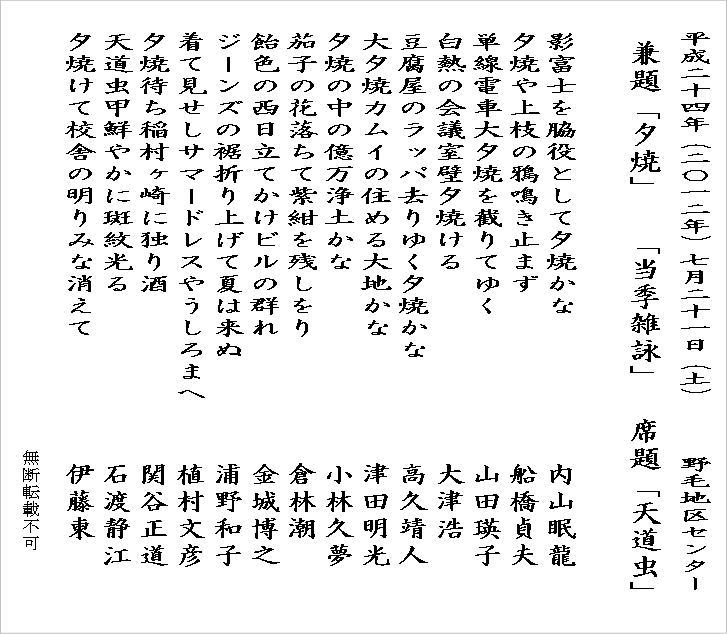 平成二十四年（二〇一二年）七月二十一日（土） 野毛地区センター
兼題「夕焼」 「当季雑詠」 席題「天道虫」
影富士を脇役として夕焼かな 内山眠龍
夕焼や上枝の鴉鳴き止まず 船橋貞夫
単線電車大夕焼を截りてゆく 山田瑛子
白熱の会議室壁夕焼ける 大津浩
豆腐屋のラッパ去りゆく夕焼かな 高久靖人
大夕焼カムイの住める大地かな 津田明光
夕焼の中の億万浄土かな 小林久夢
茄子の花落ちて紫紺を残しをり 倉林潮
飴色の西日立てかけビルの群れ 金城博之
ジーンズの裾折り上げて夏は来ぬ 浦野和子
着て見せしサマードレスやうしろまへ 植村文彦
夕焼待ち稲村ヶ崎に独り酒 関谷正道
天道虫甲鮮やかに斑紋光る 石渡静江
夕焼けて校舎の明りみな消えて 伊藤東
無断転載不可